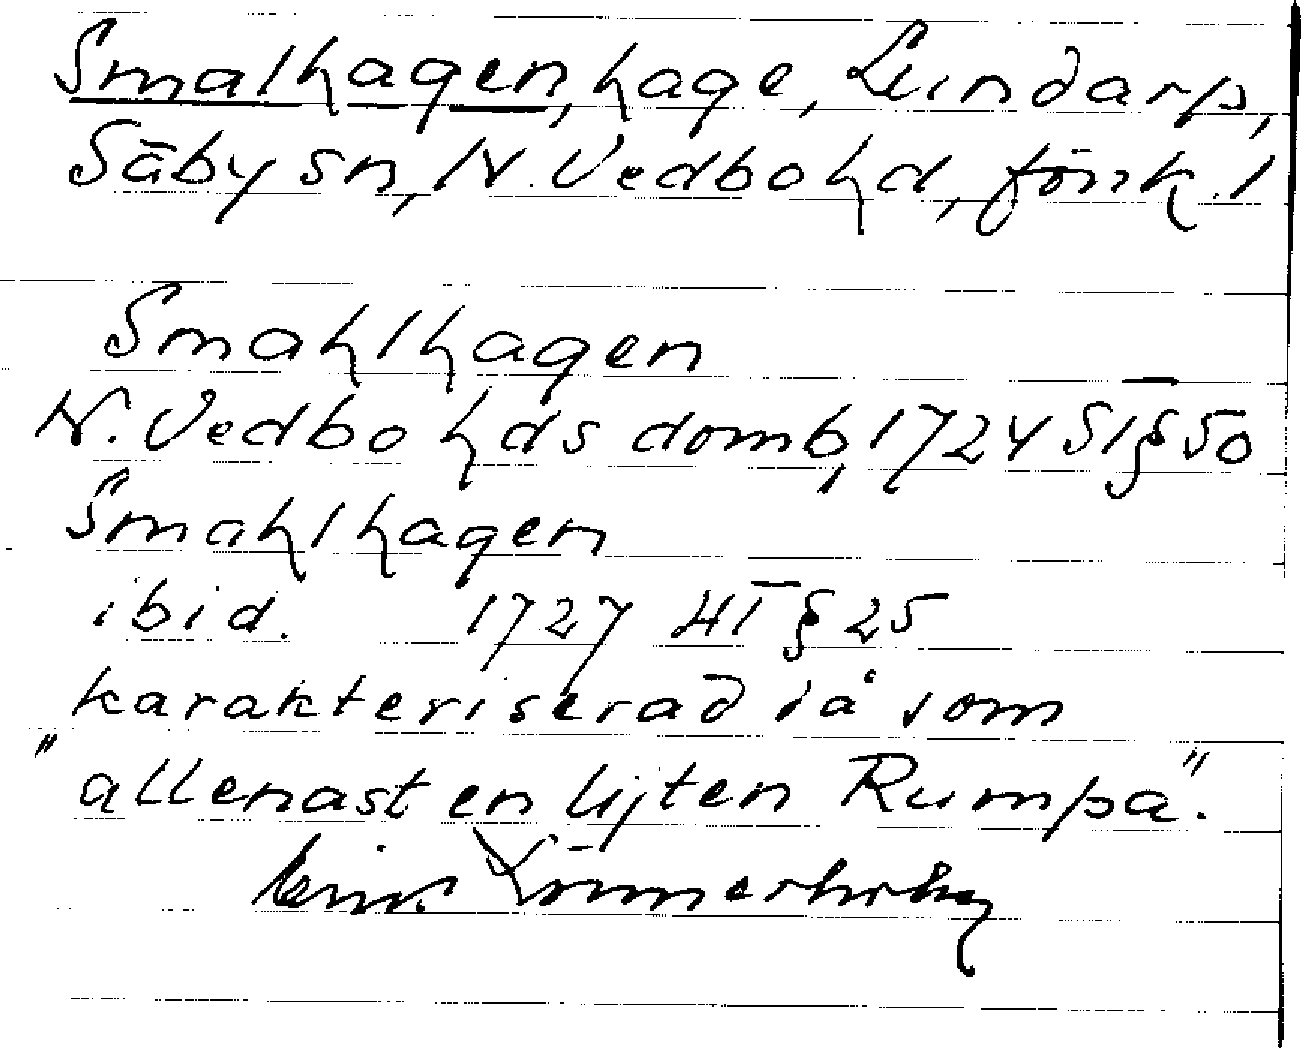 Smalhagen, hage, Lundarp,
Säby sn, N. Vedbo hd, Jönk. l
Smahlhagen
N. Vedbo hds domb, 1724 SI § 50
Smahlhagen
ibid. 1727 HT § 25
karakteriserad då som
"allenast en lijten Rumpa".